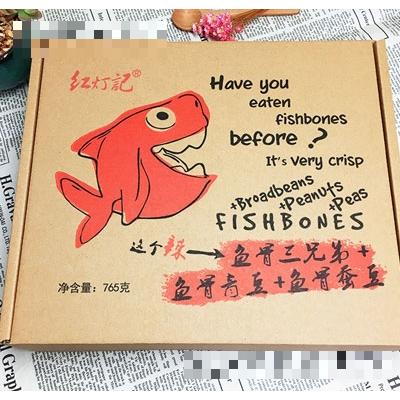 红灯記®
Have you
eaten
fishbones
before?
It's very crisp
+Broadbeans
+Peanuts
+Peas
FISHBONES
这个辣→鱼骨三兄弟+
鱼骨青豆+鱼骨蚕豆
净含量：765克